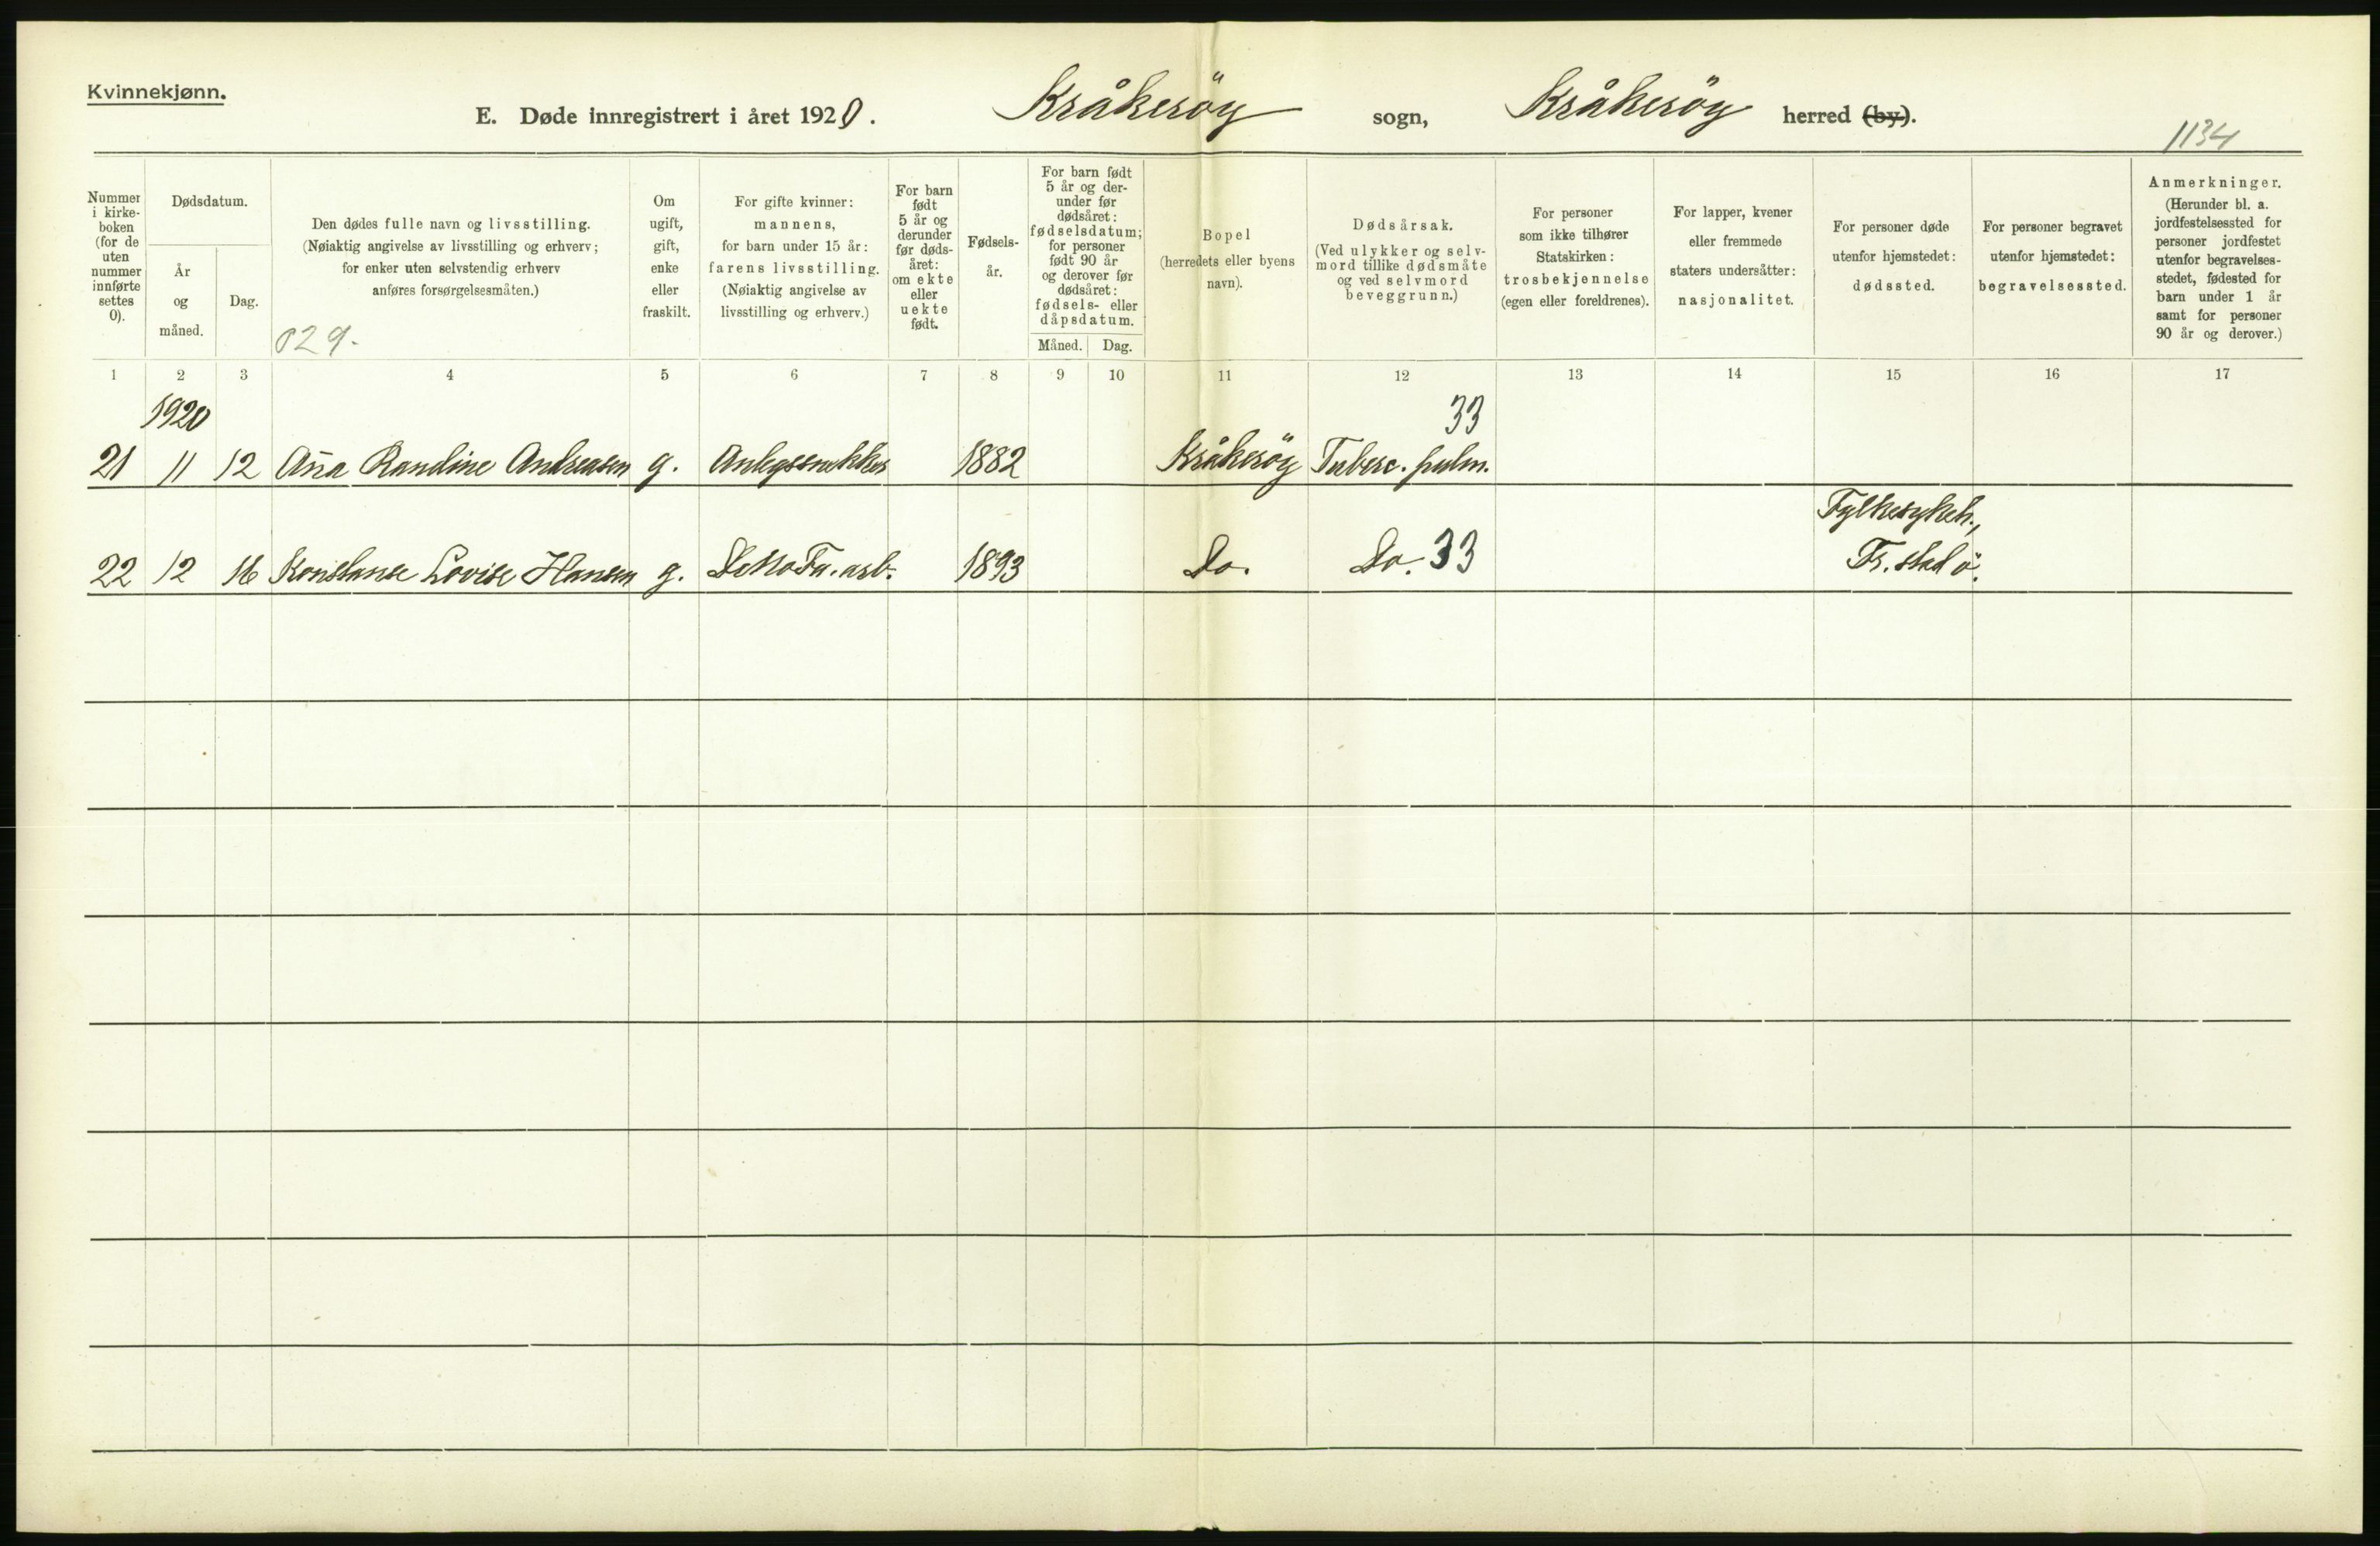 Kvinnekjønn.
E. Døde innregistrert i året 1920. Kråkeröy sogn, Kråkeröy herred (by).
1134
Nummer i kirkeboken (for de uten nummer innførte settes 0).
Dødsdatum.
År og måned.
Dag.
Den dødes fulle navn og livsstilling.
(Nøiaktig angivelse av livsstilling og erhverv;
for enker uten selvstendig erhverv
anføres forsørgelsesmåten.)
029.
Om
ugift,
gift,
enke
eller
fraskilt.
For gifte kvinner:
mannens,
for barn under 15 år:
farens livsstilling.
(Nøiaktig angivelse av
livsstilling og erhverv.)
For barn
født
5 år og
derunder
før døds-
året:
om ekte
eller
uekte
født.
Fødsels-
år.
For barn født
5 år og der-
under før
dødsåret:
fødselsdatum;
for personer
født 90 år
og derover før
dødsåret:
fødsels- eller
dåpsdatum.
Måned. Dag.
Bopel
(herredets eller byens
navn).
Dødsårsak.
(Ved ulykker og selv-
mord tillike dødsmåte
og ved selvmord
beveggrunn.)
For personer
som ikke tilhører
Statskirken:
trosbekjennelse
(egen eller foreldrenes).
For lapper, kvener
eller fremmede
staters undersåtter:
nasjonalitet.
For personer døde
utenfor hjemstedet:
dødssted.
For personer begravet
utenfor hjemstedet:
begravelsessted.
Anmerkninger.
(Herunder bl. a.
jordfestelsessted for
personer jordfestet
utenfor begravelses-
stedet, fødested for
barn under 1 år
samt for personer
90 år og derover.)
1 2 3 4 5 6 7 8 9 10 11 12 13 14 15 16 17
1920
33
21 11 12 Ana Randine Andreasen g. Anlegssnekker 1882 Kråkeröy Tuberc. pulm.
Fylkesykeh.,
22 12 16 Konstanse Lovise Hansen g. DeNoFa. arb. 1893 Do. Do. 33 Fr.stad ö.